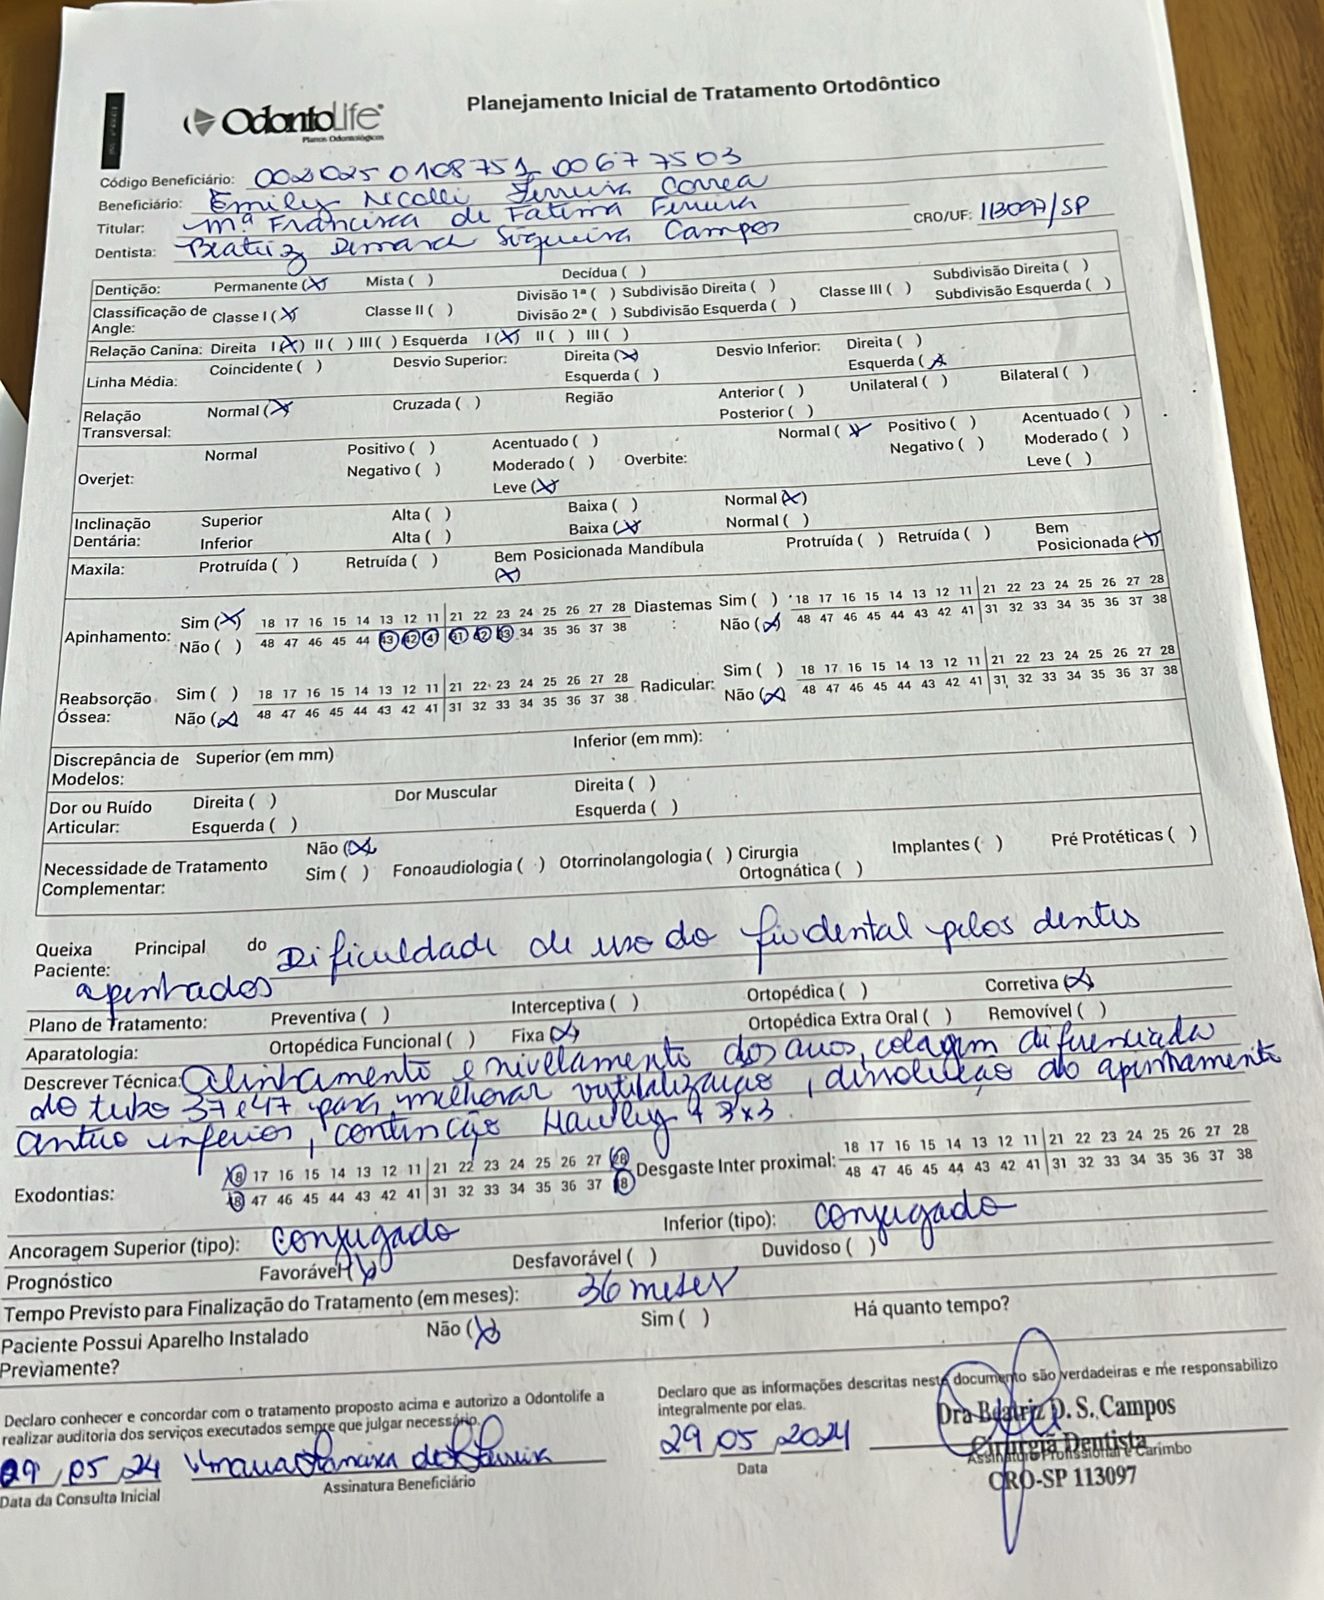 OdontoLife
Planos Odontológicos
Planejamento Inicial de Tratamento Ortodôntico
Código Beneficiário: 002025 0108751 00677503
Beneficiário: Emily Nicolli Ferreira Correa
Titular: Mª Francisca de Fatima Ferreira
Dentista: Beatriz Siqueira Campos CRO/UF: 113097/SP
Dentição: Permanente (X) Mista ( ) Decídua ( )
Classificação de Angle: Classe I (X) Classe II ( ) Divisão 1ª ( ) Subdivisão Direita ( ) Classe III ( ) Subdivisão Direita ( )
Divisão 2ª ( ) Subdivisão Esquerda ( ) Subdivisão Esquerda ( )
Relação Canina: Direita I (X) II ( ) III ( ) Esquerda I (X) II ( ) III ( )
Linha Média: Coincidente ( ) Desvio Superior: Direita (X) Desvio Inferior: Direita ( )
Esquerda ( ) Esquerda (X)
Relação Transversal: Normal (X) Cruzada ( ) Região Anterior ( ) Unilateral ( ) Bilateral ( )
Posterior ( )
Overjet: Normal Positivo ( ) Acentuado ( ) Overbite: Normal (X) Positivo ( ) Acentuado ( )
Negativo ( ) Moderado ( ) Negativo ( ) Moderado ( )
Leve (X) Leve ( )
Inclinação Dentária: Superior Alta ( ) Baixa ( ) Normal (X)
Inferior Alta ( ) Baixa (X) Normal ( )
Maxila: Protruída ( ) Retruída ( ) Bem Posicionada (X) Mandíbula Protruída ( ) Retruída ( ) Bem Posicionada (X)
Apinhamento: Sim (X) 18 17 16 15 14 13 12 11 21 22 23 24 25 26 27 28 Diastemas: Sim ( ) 18 17 16 15 14 13 12 11 21 22 23 24 25 26 27 28
Não ( ) 48 47 46 45 44 43 42 41 31 32 33 34 35 36 37 38 Não (X) 48 47 46 45 44 43 42 41 31 32 33 34 35 36 37 38
Reabsorção Óssea: Sim ( ) 18 17 16 15 14 13 12 11 21 22 23 24 25 26 27 28 Radicular: Sim ( ) 18 17 16 15 14 13 12 11 21 22 23 24 25 26 27 28
Não (X) 48 47 46 45 44 43 42 41 31 32 33 34 35 36 37 38 Não (X) 48 47 46 45 44 43 42 41 31 32 33 34 35 36 37 38
Discrepância de Modelos: Superior (em mm) Inferior (em mm):
Dor ou Ruído Articular: Direita ( ) Dor Muscular Direita ( )
Esquerda ( ) Esquerda ( )
Necessidade de Tratamento Complementar: Não (X)
Sim ( ) Fonoaudiologia ( ) Otorrinolangologia ( ) Cirurgia Ortognática ( ) Implantes ( ) Pré Protéticas ( )
Queixa Principal do Paciente: Dificuldade de uso do fio dental pelos dentes
apinhados
Plano de Tratamento: Preventiva ( ) Interceptiva ( ) Ortopédica ( ) Corretiva (X)
Aparatologia: Ortopédica Funcional ( ) Fixa (X) Ortopédica Extra Oral ( ) Removível ( )
Descrever Técnica: Alinhamento e nivelamento dos arcos, colagem diferenciada
do tubo 37 e 47 para melhorar , dissolução do apinhamento
antero inferior, contenção Hawley + 3x3.
Exodontias: 18 17 16 15 14 13 12 11 21 22 23 24 25 26 27 28 Desgaste Inter proximal: 18 17 16 15 14 13 12 11 21 22 23 24 25 26 27 28
48 47 46 45 44 43 42 41 31 32 33 34 35 36 37 38 48 47 46 45 44 43 42 41 31 32 33 34 35 36 37 38
Ancoragem Superior (tipo): conjugado Inferior (tipo): conjugado
Prognóstico Favorável (X) Desfavorável ( ) Duvidoso ( )
Tempo Previsto para Finalização do Tratamento (em meses): 36 meses
Paciente Possui Aparelho Instalado Previamente? Não (X) Sim ( ) Há quanto tempo?
Declaro conhecer e concordar com o tratamento proposto acima e autorizo a Odontolife a
realizar auditoria dos serviços executados sempre que julgar necessário.
29/05/24 Maria Francisca de F Ferreira
Data da Consulta Inicial Assinatura Beneficiário
Declaro que as informações descritas neste documento são verdadeiras e me responsabilizo
integralmente por elas.
29/05/2024
Data Assinatura Profissional e Carimbo
Dra Beatriz D. S. Campos
Cirurgiã Dentista
CRO-SP 113097